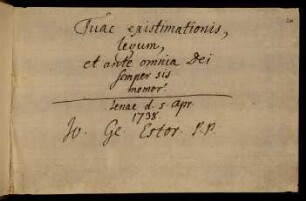 Tuae existimationis,
legum,
et ante omnia Dei
semper sis
memor
Ienae d. 5 Apr.
1738.
Jo. Ge. Estor. P.P.